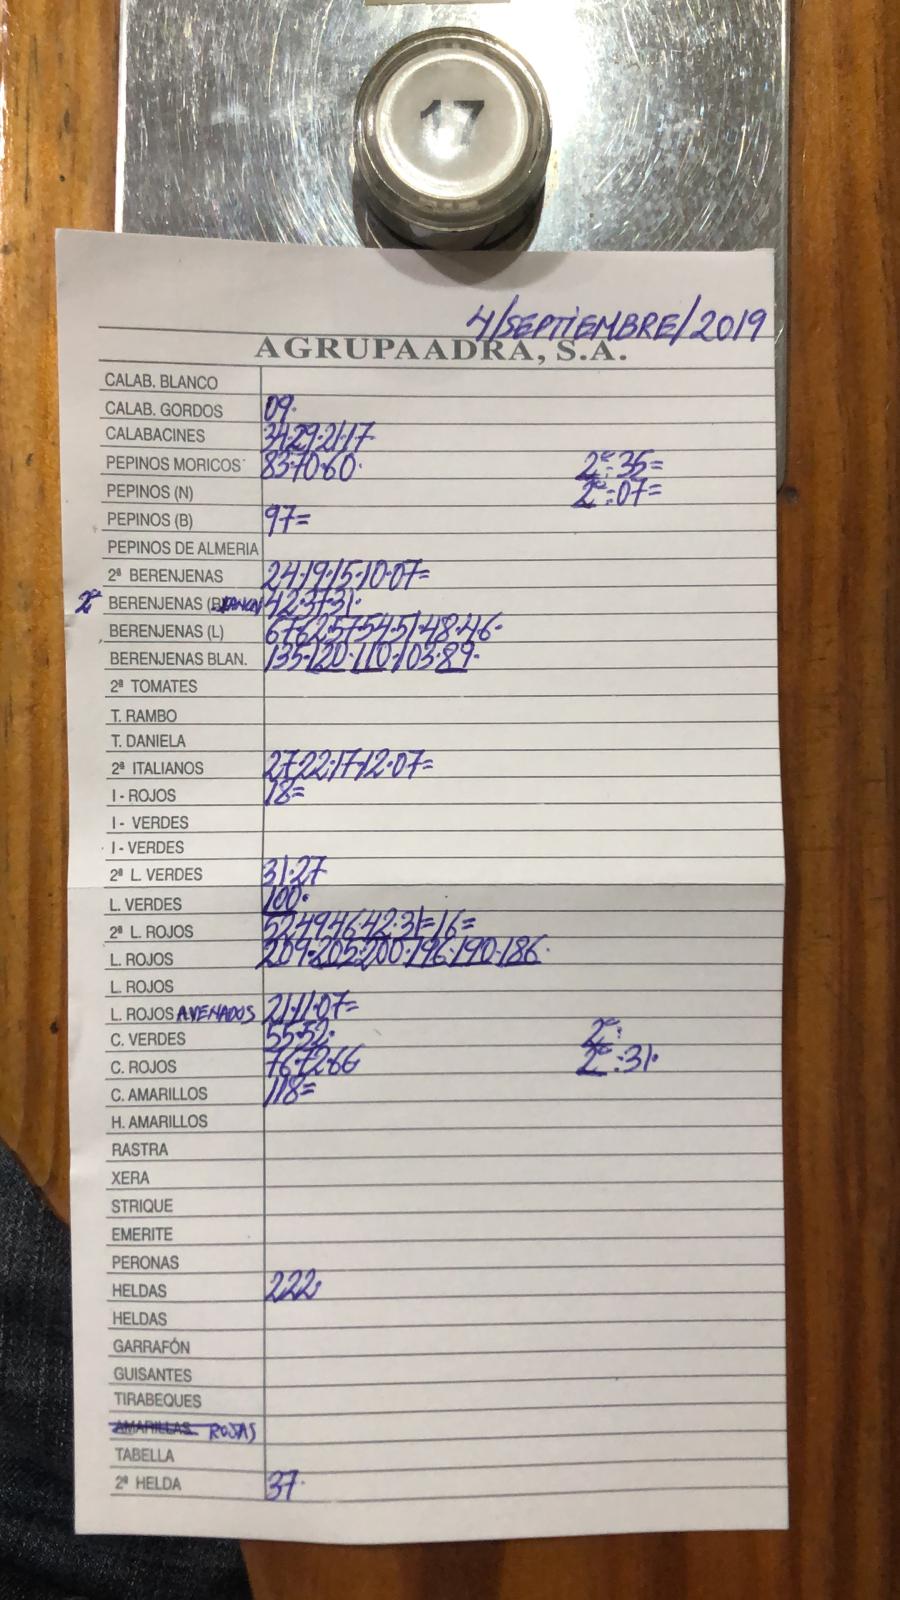 17
4/SEPTIEMBRE/2019
AGRUPAADRA, S.A.
CALAB. BLANCO
CALAB. GORDOS 09·
CALABACINES 34·29·21·17·
PEPINOS MORICOS 83·70·60· 2ª:35=
PEPINOS (N) 2ª:07=
PEPINOS (B) 97=
PEPINOS DE ALMERIA
2ª BERENJENAS 24·19·15·10·07=
2ª BERENJENAS 42·37·31·
BERENJENAS (L) 67·62·57·54·51·48·46·
BERENJENAS BLAN. 135·120·110·103·89·
2ª TOMATES
T. RAMBO
T. DANIELA
2ª ITALIANOS 27·22·17·12·07=
I - ROJOS 18=
I - VERDES
I - VERDES
2ª L. VERDES 31·27
L. VERDES 100·
2ª L. ROJOS 52·49·46·42·31=16=
L. ROJOS 209·205·200·196·190·186·
L. ROJOS
L. ROJOS AVENADOS 21·11·07=
C. VERDES 55·52· 2ª:
C. ROJOS 76·72·66 2ª:31·
C. AMARILLOS 118=
H. AMARILLOS
RASTRA
XERA
STRIQUE
EMERITE
PERONAS
HELDAS 222·
HELDAS
GARRAFÓN
GUISANTES
TIRABEQUES
AMARILLAS ROJAS
TABELLA
2ª HELDA 37·